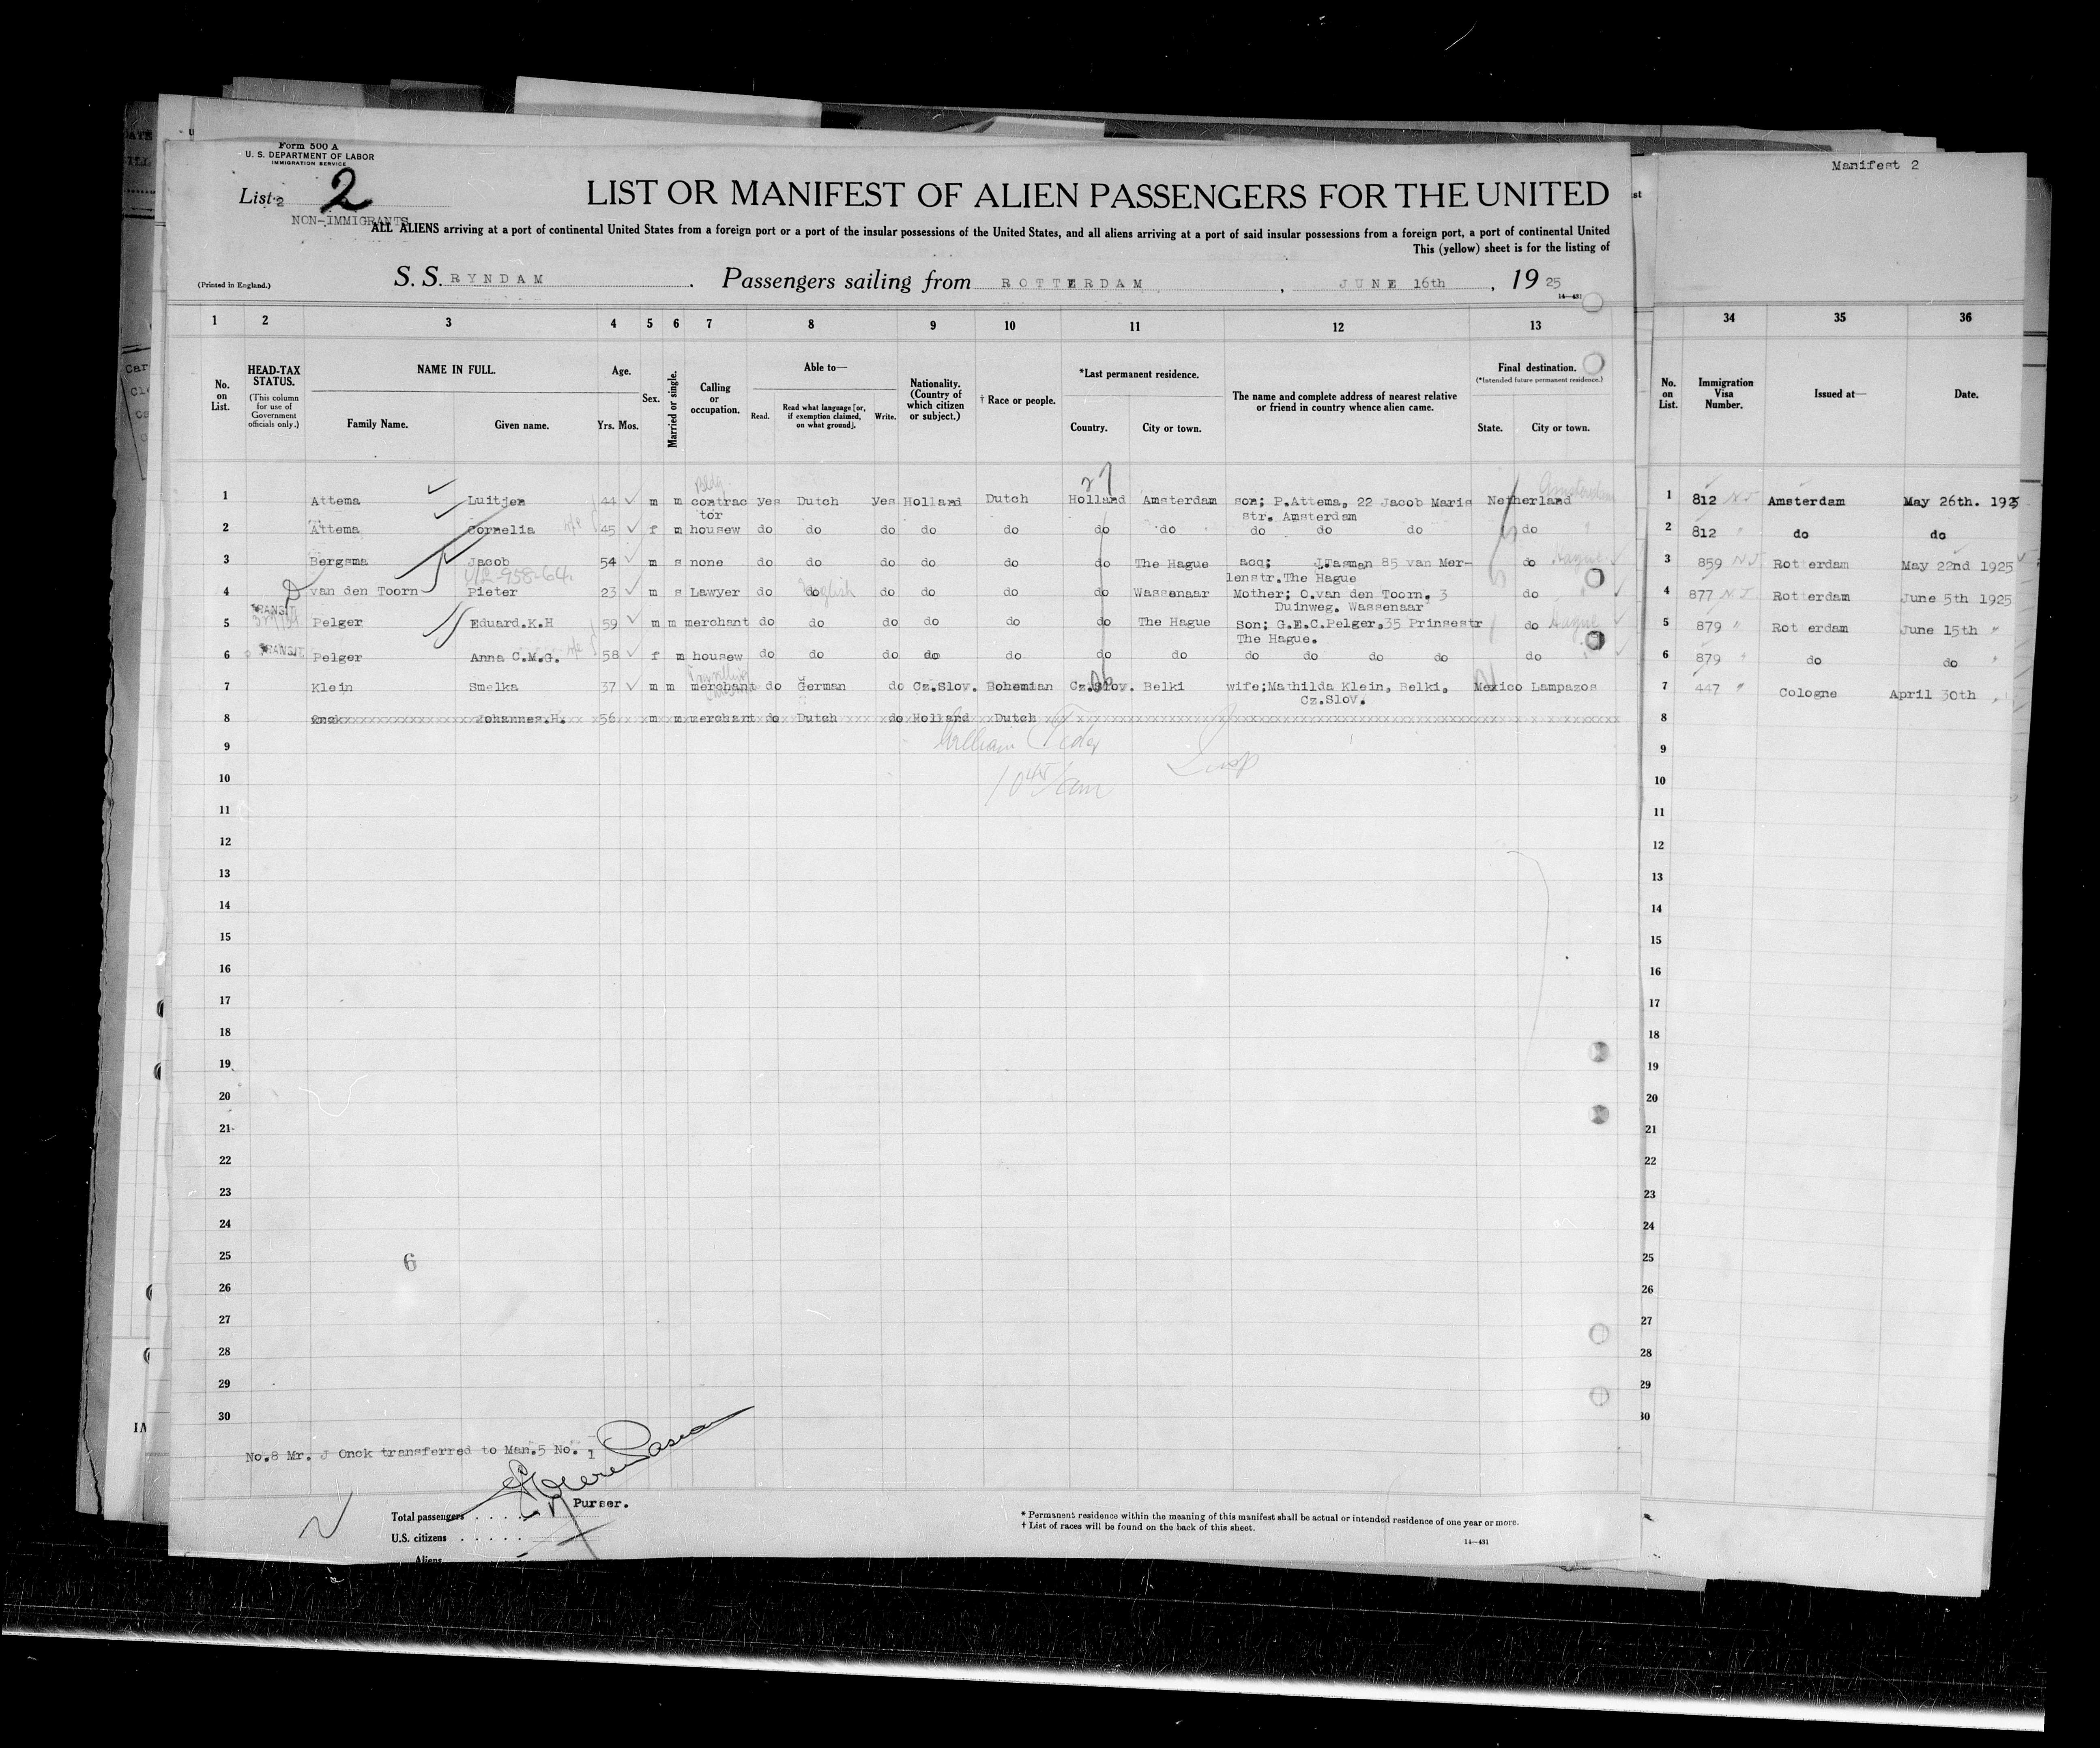 Manifest 2
Form 500 A
U. S. DEPARTMENT OF LABOR
IMMIGRATION SERVICE
List 2 2
NON-IMMIGRANTS
LIST OR MANIFEST OF ALIEN PASSENGERS FOR THE UNITED
ALL ALIENS arriving at a port of continental United States from a foreign port or a port of the insular possessions of the United States, and all aliens arriving at a port of said insular possessions from a foreign port, a port of continental United
This (yellow) sheet is for the listing of
(Printed in England.)
S. S. RYNDAM . Passengers sailing from ROTTERDAM , JUNE 16th , 19 25
14—431
1 2 3 4 5 6 7 8 9 10 11 12 13 34 35 36
No. on List.
HEAD-TAX STATUS.
(This column for use of Government officials only.)
NAME IN FULL.
Family Name. Given name.
Age.
Yrs. Mos.
Sex.
Married or single.
Calling or occupation.
Able to—
Read. Read what language [or, if exemption claimed, on what ground]. Write.
Nationality. (Country of which citizen or subject.)
† Race or people.
*Last permanent residence.
Country. City or town.
The name and complete address of nearest relative or friend in country whence alien came.
Final destination.
(*Intended future permanent residence.)
State. City or town.
No. on List.
Immigration Visa Number.
Issued at—
Date.
Bldg.
27
Amsterdam
1 Attema Luitjen 44 m m contrac yes Dutch yes Holland Dutch Holland Amsterdam son; P.Attema, 22 Jacob Maris Netherland 1 812 NJ Amsterdam May 26th. 1925
tor str. Amsterdam
2 Attema Cornelia 45 f m housew do do do do do do do do do do do 2 812 " do do
3 Bergsma Jacob 54 m s none do do do do do do The Hague acq; J.Tasman 85 van Mer- do Hague 3 859 NJ Rot erdam May 22nd 1925
lenstr.The Hague
4 van den Toorn Pieter 23 m s Lawyer do do English do do do do Wassenaar Mother; O.van den Toorn. 3 do " 4 877 NJ Rotterdam June 5th 1925
TRANSIT Duinweg. Wassenaar
5 Pelger Eduard.K.H 59 m m merchant do do do do do do The Hague Son; G.E.C.Pelger,35 Prinsestr do Hague 5 879 " Rot erdam June 15th "
The Hague.
TRANSIT
6 Pelger Anna C.M.G. 58 f m housew do do do do do do do do do do do do 6 879 " do do "
7 Klein Smelka 37 m m merchant do German do Cz.Slov. Bohemian Cz.Slov. Belki wife;Mathilda Klein, Belki, Mexico Lampazos 7 447 " Cologne April 30th
Cz.Slov.
8 Onck Johannes.H. 56 m m merchant do Dutch do Holland Dutch 8
9 9
10 10
11 11
12 12
13 13
14 14
15 15
16 16
17 17
18 18
19 19
20 20
21 21
22 22
23 23
24 24
25 6 25
26 26
27 27
28 28
29 29
30 30
No.8 Mr. J Onck transferred to Man.5 No. 1
Purser.
Total passengers . . . .
U.S. citizens . . . . .
Aliens
* Permanent residence within the meaning of this manifest shall be actual or intended residence of one year or more.
† List of races will be found on the back of this sheet.
14—431